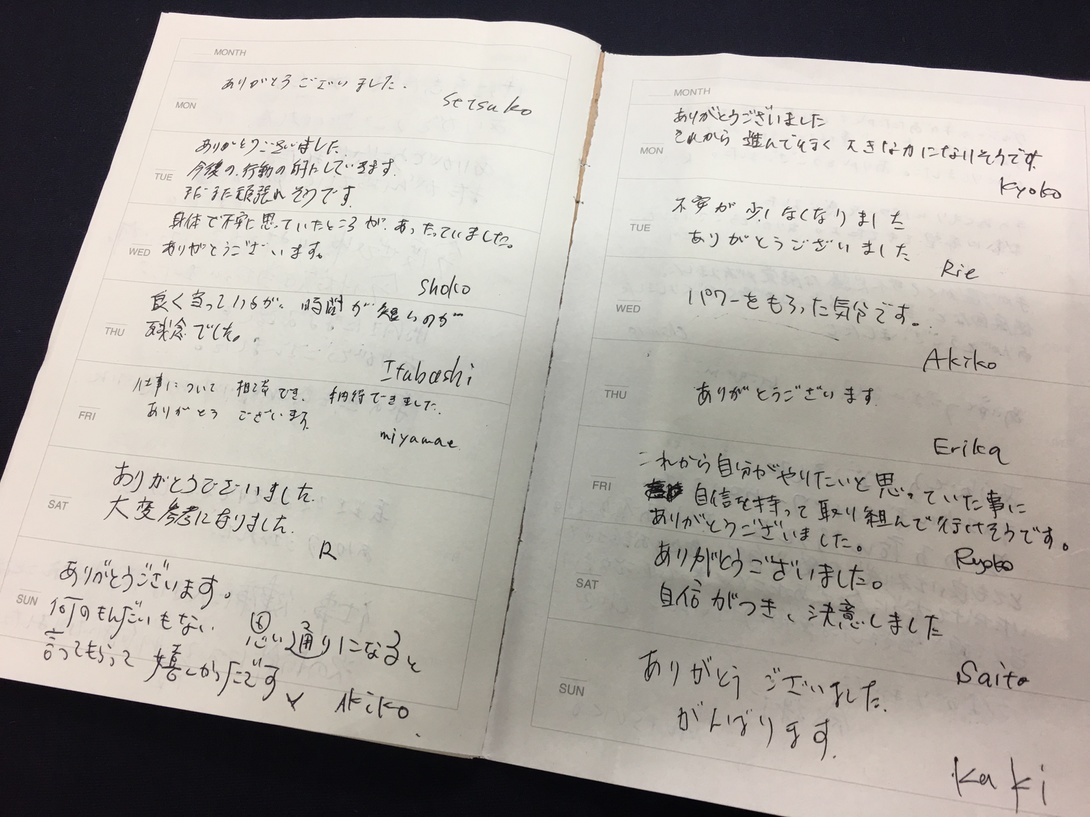 MONTH
MON
ありがとうございました.
Setsuko
TUE
ありがとうございました.
今後の行動の的にしていきます.
まだまだ頑張れそうです.
WED
身体で不安に思っていたところが、あたっていました。
ありがとうございます。
Shoko
THU
良く当っているが、時間が短いのが
残念でした。
Itabashi
FRI
仕事について 相談でき、納得できました.
ありがとう ございます
miyamae
SAT
ありがとうございました.
大変参考になりました.
R
SUN
ありがとうございます。
何のもんだいもない 思い通りになると
言ってもらって 嬉しかったです
Akiko
MONTH
MON
ありがとうございました
これから 進んで行く 大きな力になりそうです.
Kyoko
TUE
不安が 少しなくなりました
ありがとうございました
Rie
WED
パワーをもらった気分です。
Akiko
THU
ありがとうございます.
Erika
FRI
これから自分がやりたいと思っていた事に
自信を持って取り組んで行けそうです。
ありがとうございました。
Ryoko
SAT
ありがとうございました。
自信がつき、決意しました
Saito
SUN
ありがとう ございました.
がんばります.
kaki